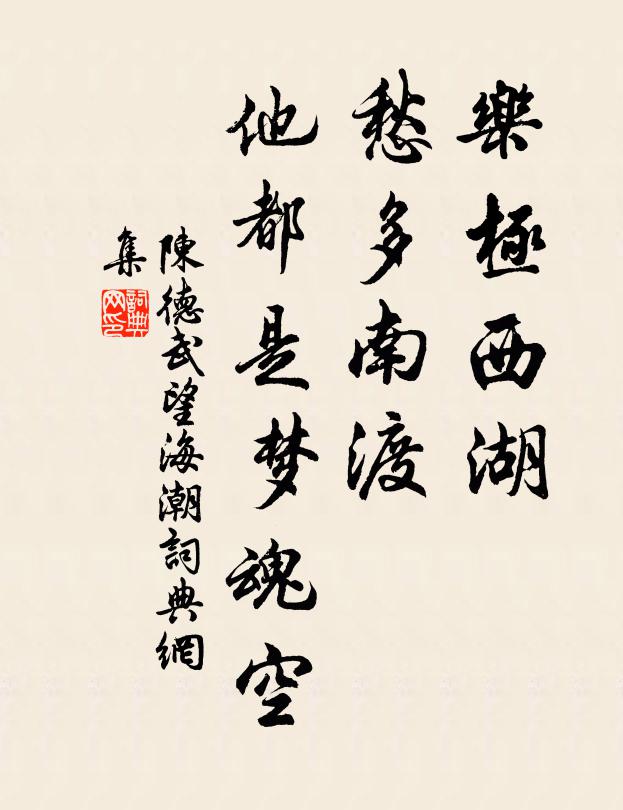 樂極西湖
愁多南渡
他都是梦魂空
陳德武望海潮詞典網
集
詞典
网印